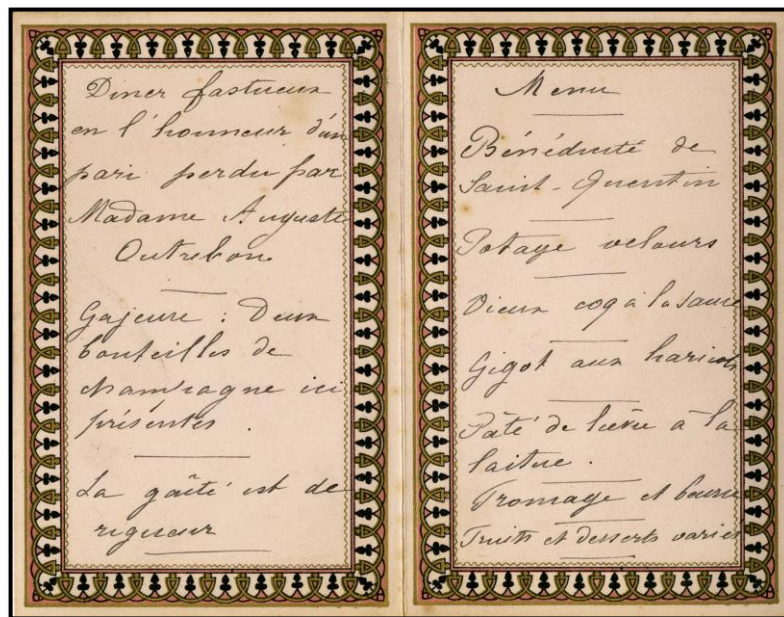 Diner fastueux
en l'honneur d'un
pari perdu par
Madame Auguste
Outrebon
Gajeure : Deux
bouteilles de
champagne ici
présentes .
La gaîté est de
rigueur
Menu
Bénédicité de
Saint-Quentin
Potage velours
Vieux coq à la sauce
Gigot aux haricots
Pâté de lièvre à la
laitue .
Fromage et beurre
Fruits et desserts variés